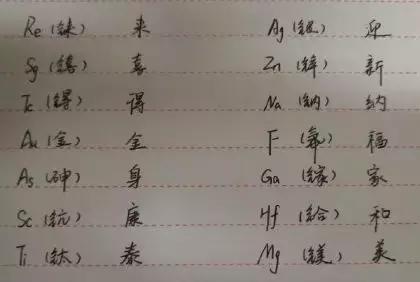 Re (铼) 来 Ag (银) 迎
Sg (𨭎) 喜 Zn (锌) 新
Tc (锝) 得 Na (钠) 纳
Au (金) 金 F (氟) 福
As (砷) 身 Ga (镓) 家
Sc (钪) 康 Hf (铪) 和
Ti (钛) 泰 Mg (镁) 美